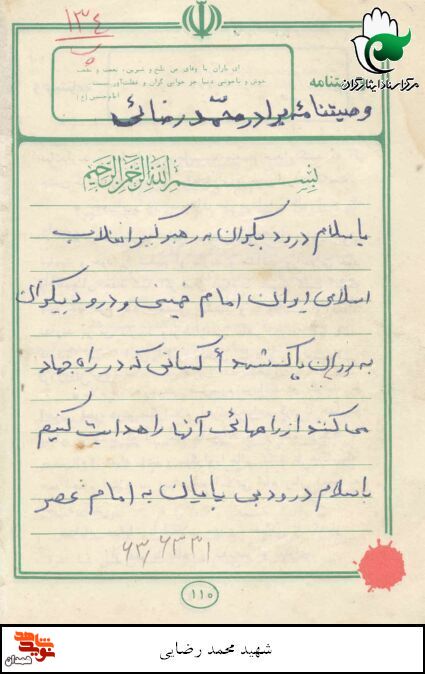 ۱۳۴
ب
ای یاران با وفای من تلخ و شیرین، نعمت و نقمت
خوش و ناخوشی دنیا جز خوابی گران و غفلت‌آور نیست
امام حسین (ع)
وصیتنامه
مرکز اسناد ایثارگران
وصیتنامه برادر محمد رضائی
بسم الله الرحمن الرحیم
با سلام درود بیکران به رهبر کبیر انقلاب
اسلامی ایران امام خمینی و درود بیکران
به روان پاک شهدا کسانی که در راه جهاد
می کنند از راههائی آنها را هدایت کنیم
با سلام درود بی پایان به امام عصر
۶۳٫۶۳۳۱
۱۱۰
شاهد
نوید
همدان
شهید محمد رضایی